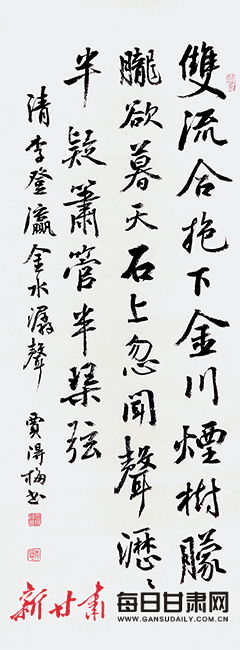 雙流合抱下金川煙樹朦
朧欲暮天石上忽聞聲瀝〻
半疑簫管半琴弦
清李登瀛金水潺聲 賈得梅书
新甘肃 每日甘肃网
WWW.GANSUDAILY.COM.CN